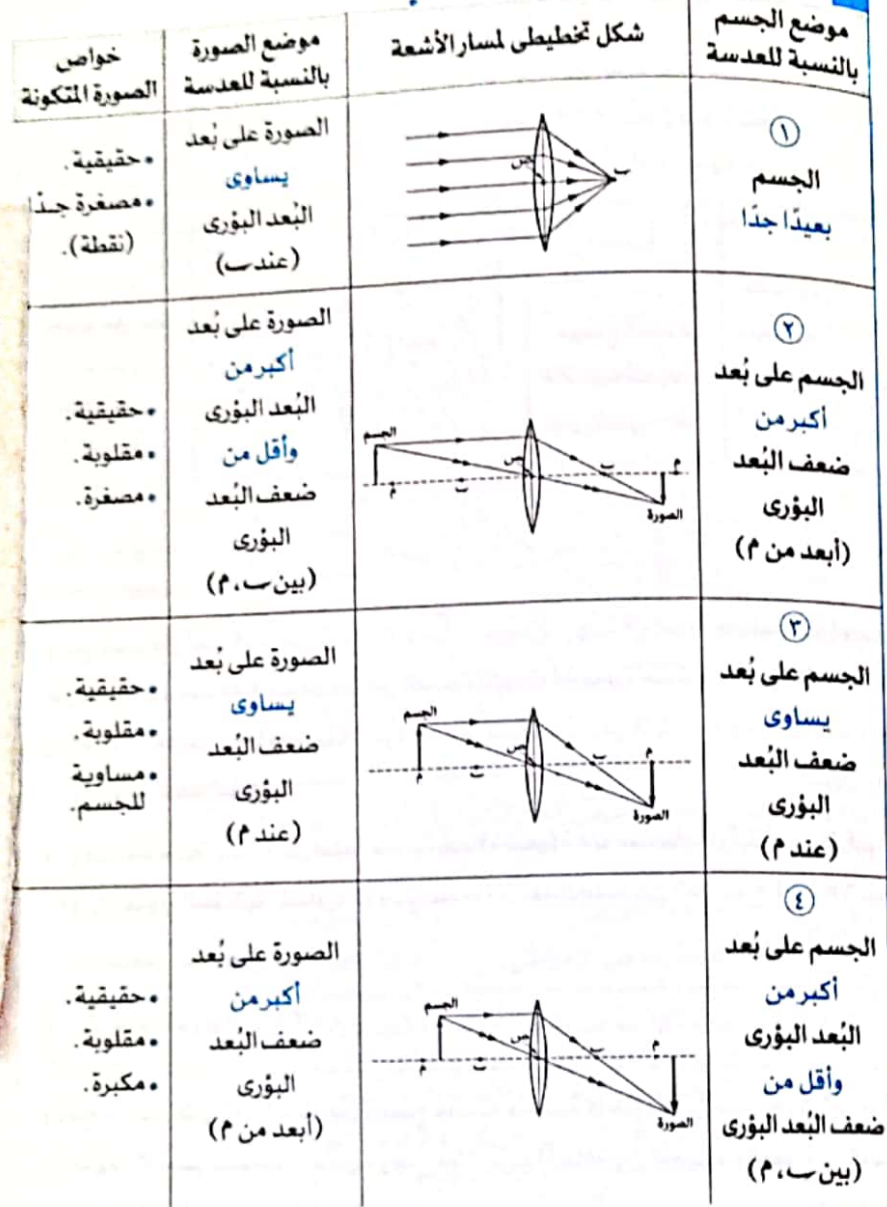 موضع الجسم
بالنسبة للعدسة
شكل تخطيطى لمسار الأشعة
موضع الصورة
بالنسبة للعدسة
خواص
الصورة المتكونة
١
الجسم
بعيدًا جدًا
ص
ب
الصورة على بُعد
يساوى
البُعد البؤرى
(عند ب)
• حقيقية.
• مصغرة جدًا
(نقطة).
٢
الجسم على بُعد
أكبر من
ضعف البُعد
البؤرى
(أبعد من م)
الجسم
م
ب
ص
ب
م
الصورة
الصورة على بُعد
أكبر من
البُعد البؤرى
وأقل من
ضعف البُعد
البؤرى
(بين ب، م)
• حقيقية.
• مقلوبة.
• مصغرة.
٣
الجسم على بُعد
يساوى
ضعف البُعد
البؤرى
(عند م)
الجسم
م
ب
ص
ب
م
الصورة
الصورة على بُعد
يساوى
ضعف البُعد
البؤرى
(عند م)
• حقيقية.
• مقلوبة.
• مساوية
للجسم.
٤
الجسم على بُعد
أكبر من
البُعد البؤرى
وأقل من
ضعف البُعد البؤرى
(بين ب، م)
الجسم
م
ب
ص
ب
م
الصورة
الصورة على بُعد
أكبر من
ضعف البُعد
البؤرى
(أبعد من م)
• حقيقية.
• مقلوبة.
• مكبرة.